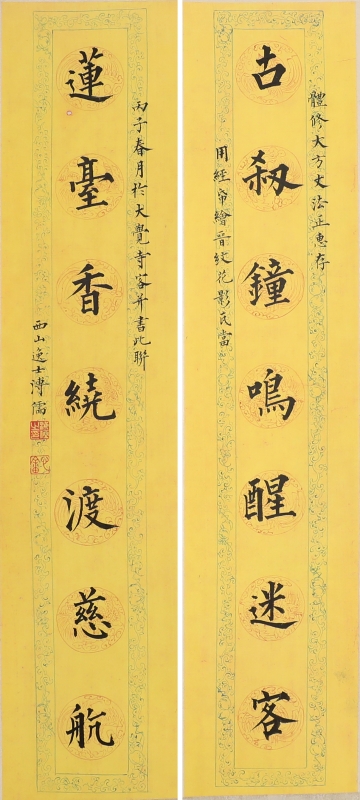 體修大方丈法正惠存
古刹鐘鳴醒迷客
用經帋繪晉紋花影瓦當
蓮臺香繞渡慈航
丙子春月於大覺寺客並書此聯
西山逸士溥儒